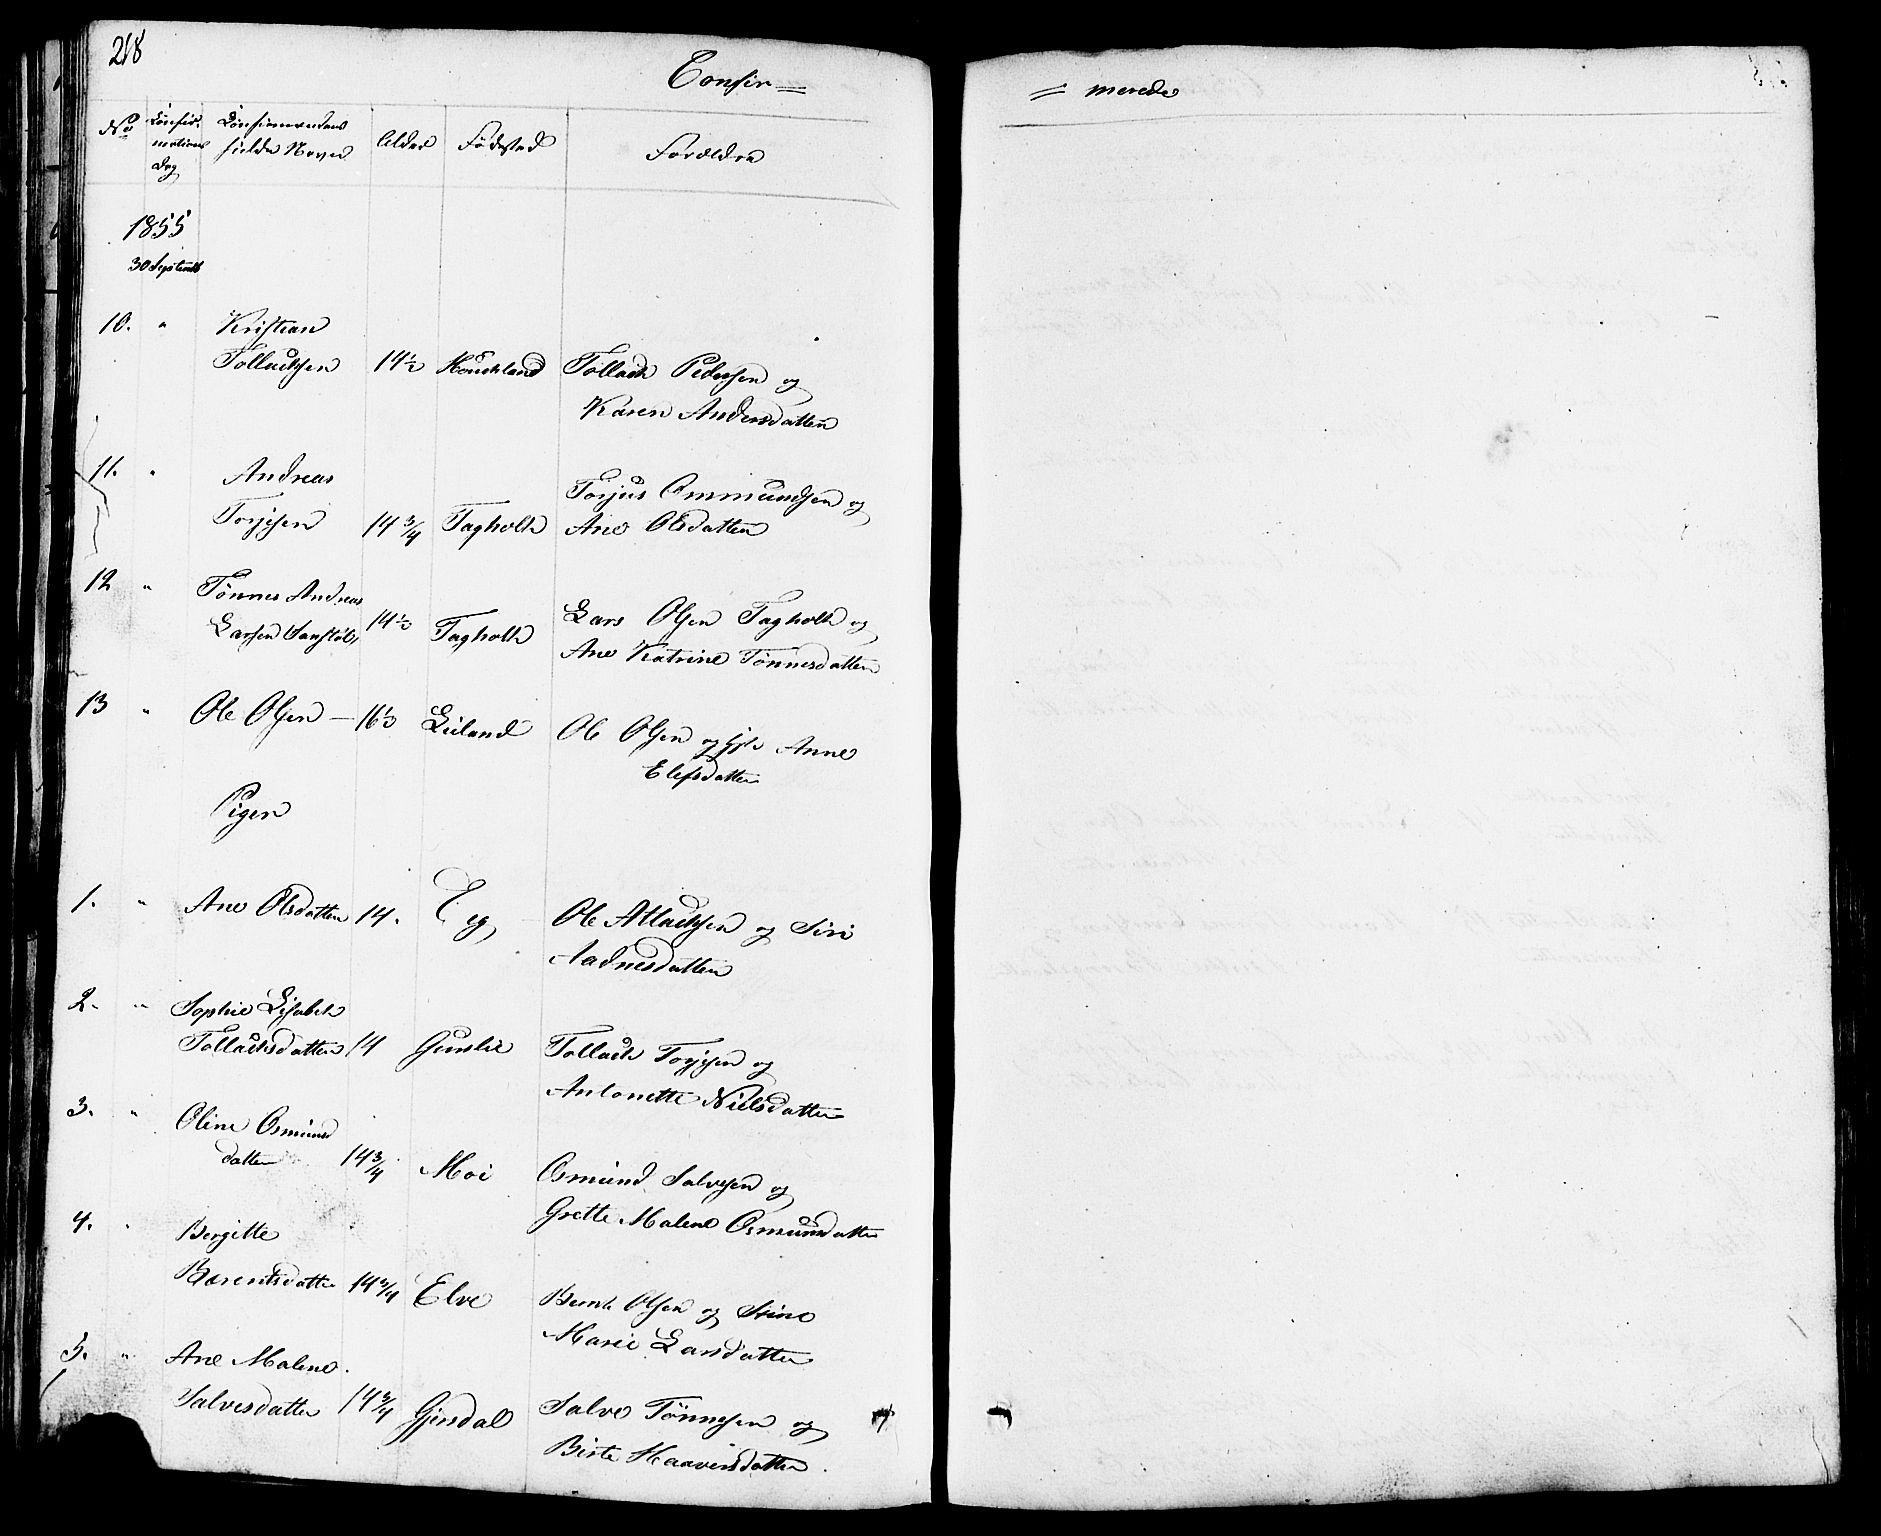 218
Confir=
= merede
No
Confir-
mations
Dag
Confirmerendens
fulde Navn
Alder
Fødested
Forældre
1855
30 Septemb
10. " Kristian
Tollacksen 14½ Houckland Tollack Pedersen og
Karen Andersdatter
11. " Andreas
Torjesen 14¾ Tagholt
Torjus Ommundsen og
Ane Olsdatter
12 " Tønnes Andreas
Larsen 14½ Tagholt
Lars Olsen Tagholt og
Ane Katrine Tønnesdatter
13 " Ole Olsen — 16½ Leiland Ole Olsen og Anne
Elefsdatter
Piger
1. " Ane Olsdatter 14. Eeg Ole Atlacksen og Siri
Aadnesdatter
2. " Sophie Lisabeth
Tollacksdatter 14 Gunslie Tollack Torjesen og
Antonette Nielsdatter
3. " Oline Osmunds
datter 14¾ Moi Osmund Salvesen og
Grette Malene Osmundsdatter
4. " Bergitte
Barentsdatter 14¾ Elve Bernt Olsen og Stine
Marie Larsdatter
5. " Ane Malene
Salvesdatter 14¾ Gjendal Salve Tønnesen og
Birte Haaversdatter.